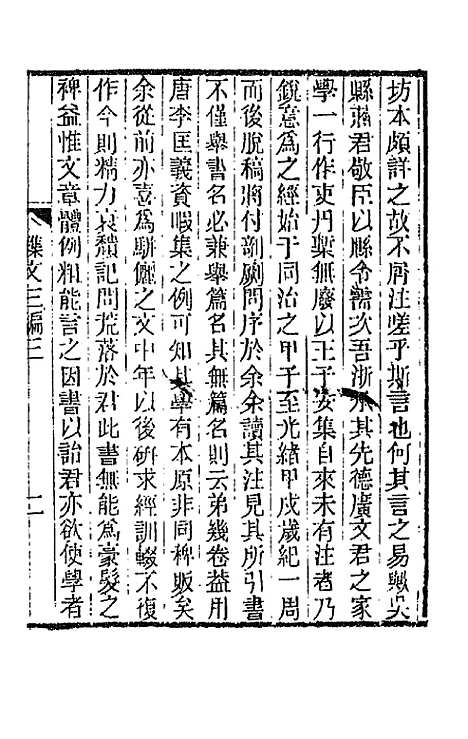 坊本頗詳之故不屑注嗟乎斯言也何其言之易歟吳
縣蔣君敬臣以縣令需次吾浙承其先德廣文君之家
學一行作吏丹槧無廢以王子安集自來未有注者乃
銳意爲之經始于同治之甲子至光緒甲戌歲紀一周
而後脫稿將付剞劂問序於余余讀其注見其所引書
不僅舉書名必兼舉篇名其無篇名則云弟幾卷葢用
唐李匡義資暇集之例可知其學有本原非同稗販矣
余從前亦喜爲駢儷之文中年以後硏求經訓輟不復
作今則精力衰穨記問荒落於君此書無能爲豪髮之
裨益惟文章體例粗能言之因書以詒君亦欲使學者
襍文三編三